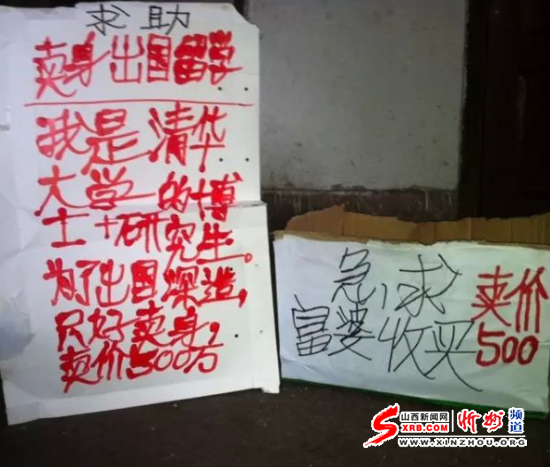 求助
卖身出国留学
我是清华
大学的博
士+研究生。
为了出国深造,
只好卖身,
卖价500万
急求
富婆收买
卖价
500
山西新闻网
SXRB.COM
忻州
频道
WWW.XINZHOU.ORG